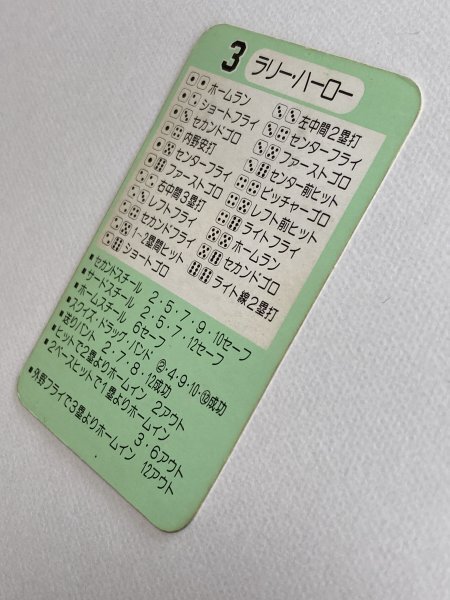 3 ラリー・ハーロー
ホームラン
ショートフライ
セカンドゴロ
内野安打
センターフライ
ファーストゴロ
右中間3塁打
レフトフライ
セカンドフライ
1-2塁間ヒット
ショートゴロ
左中間2塁打
センターフライ
ファーストゴロ
センター前ヒット
ピッチャーゴロ
レフト前ヒット
ライトフライ
ホームラン
セカンドゴロ
ライト線2塁打
■セカンドスチール 2・5・7・9・10セーフ
■サードスチール 2・5・7・12セーフ
■ホームスチール 6セーフ
■スクイズ・ドラッグ・バンド ②・4・9・10・⑫成功
■送りバント 2・7・8・12成功
■ヒットで2塁よりホームイン 2アウト
■2ベースヒットで1塁よりホームイン
3・6アウト
■外野フライで3塁よりホームイン 12アウト